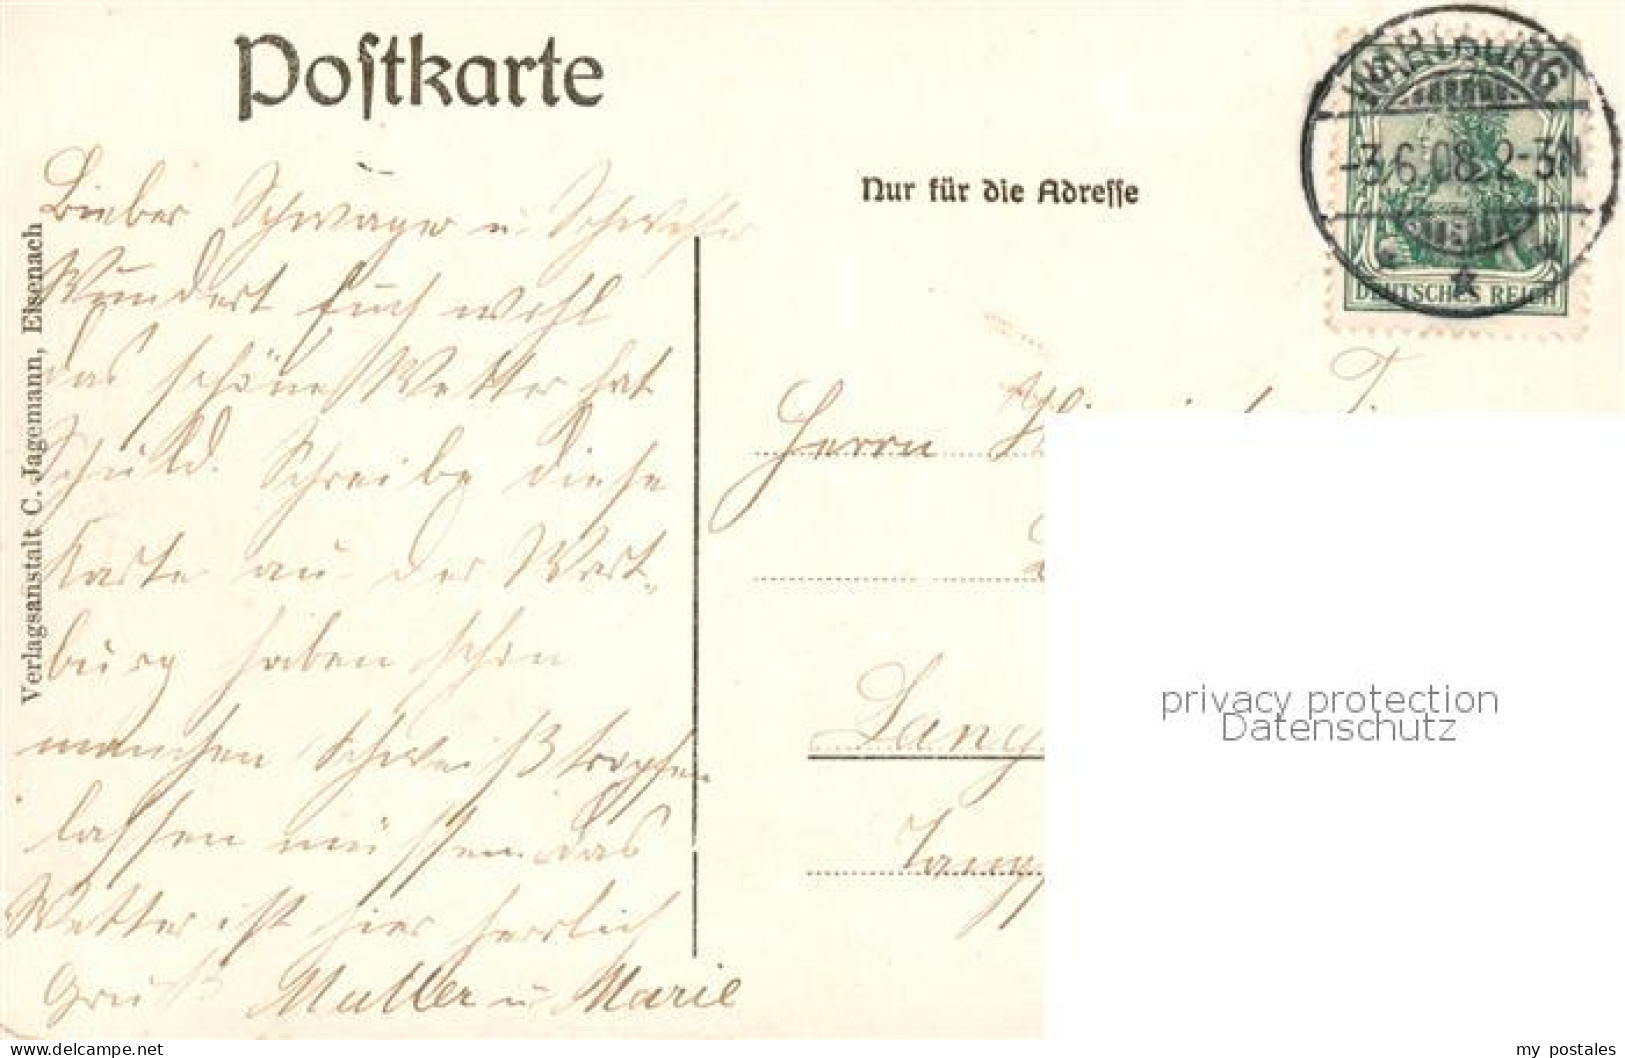 Postkarte
WARTBURG
-3.6.08.2-3N
DEUTSCHES REICH
Nur für die Adresse
Verlagsanstalt C. Jagemann, Eisenach
Lieber Schwager u. Schwester
Wundert Euch wohl
das schöne Wetter hat
Schuld. Schreibe diese
Karte auf der Wart-
burg haben schon
manchen Schweißtropfen
lassen müssen das
Wetter ist hier herrlich
Gruß Mutter u. Marie
Herrn
Lang
privacy protection
Datenschutz
www.delcampe.net
my_postales